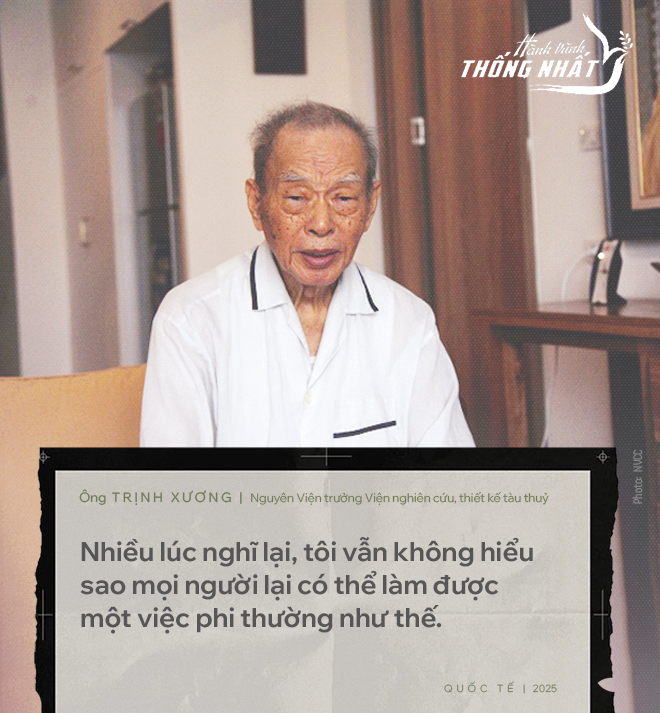 Hành trình
THỐNG NHẤT
Photo: NVCC
Ông TRỊNH XƯƠNG | Nguyên Viện trưởng Viện nghiên cứu, thiết kế tàu thuỷ
Nhiều lúc nghĩ lại, tôi vẫn không hiểu
sao mọi người lại có thể làm được
một việc phi thường như thế.
QUỐC TẾ | 2025